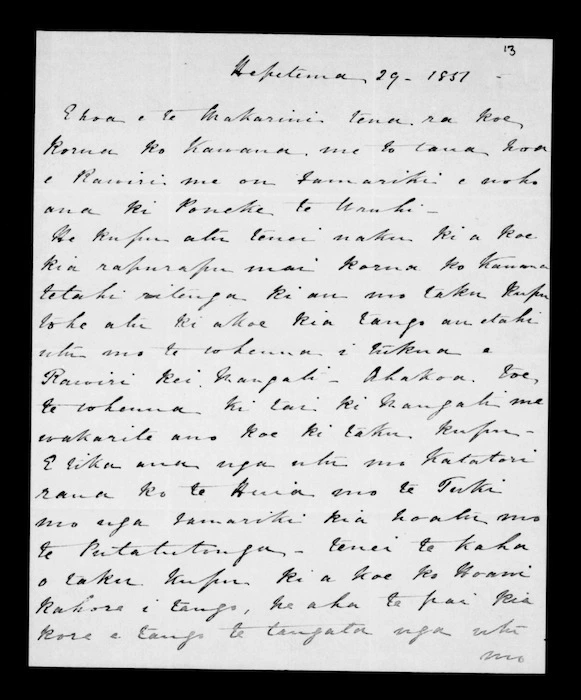 13
Hepetema 29 - 1851 -
Ehoa e te Makarini tena ra koe
korua ko Kawana me to taua hoa
e Rawiri me ou tamariki e noho
ana ki Poneke te Uruhi -
He kupu atu tenei naku ki a koe
kia rapurapu mai korua ko Kawana
tetahi ritenga ki au mo taku kupu
tohe atu ki akoe kia tango au etahi
utu mo te whenua i tukua e
Rawiri kei Mangati - Ahakoa toe
te whenua ki tai ki Mangati me
wakarite ano koe ki taku kupu -
E tika ana nga utu mo Katatori
rana ko te Huia mo te Tuki
mo nga tamariki kia hoatu mo
te Putatutonga - tenei te kaha
o taku kupu ki a koe ko Hoani
kahore i tango, he aha te pai kia
kore e tango te tangata nga utu
mo